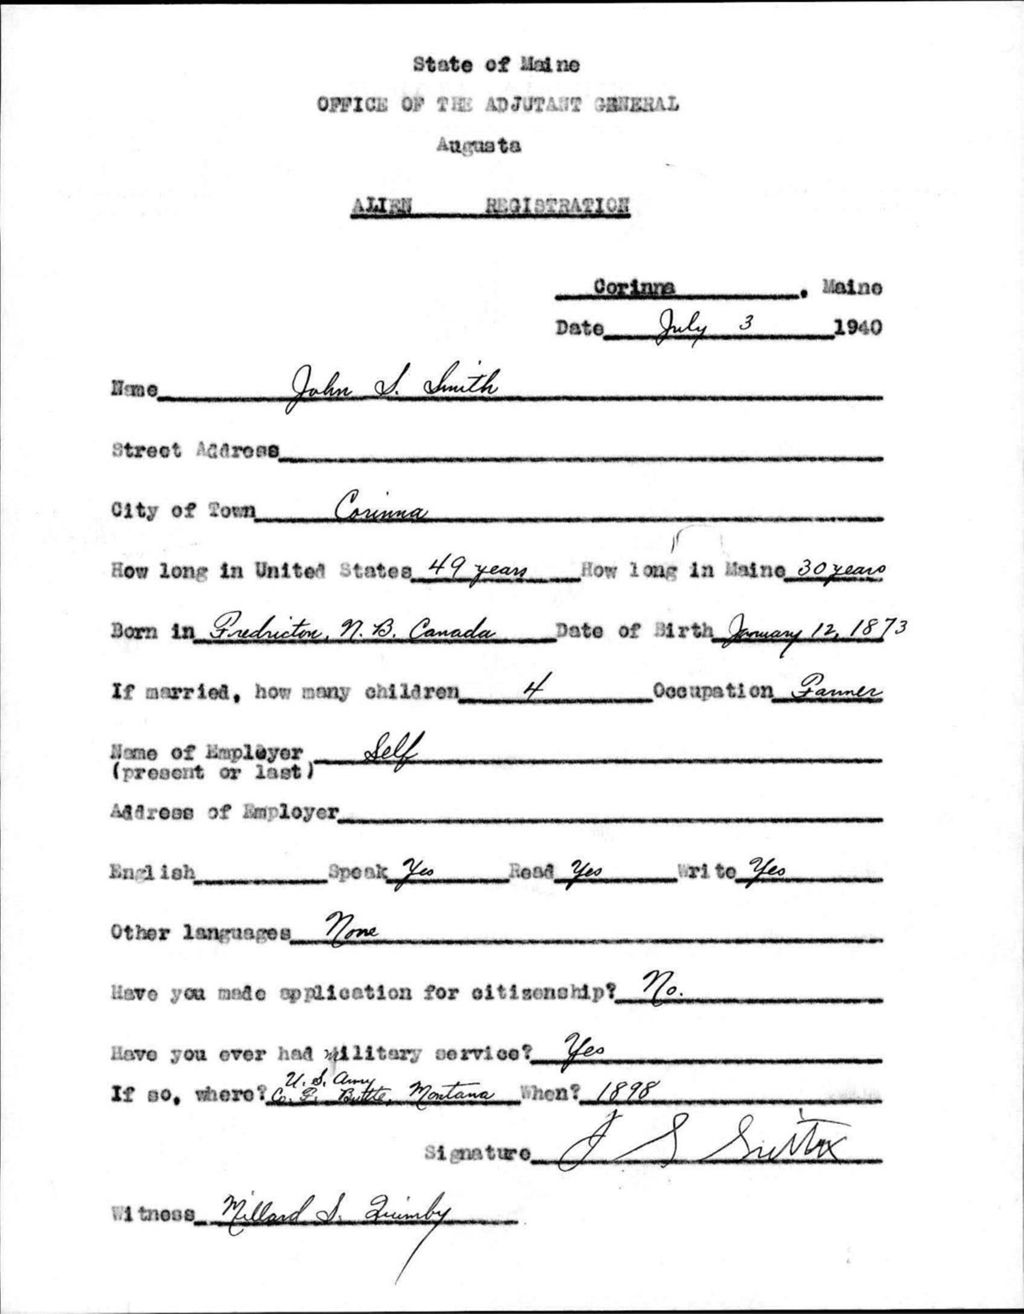 State of Maine
OFFICE OF THE ADJUTANT GENERAL
Augusta
ALIEN REGISTRATION
Corinna, Maine
Date July 3 1940
Name John S. Smith
Street Address
City of Town Corinna
How long in United States 49 years How long in Maine 30 years
Born in Fredricton, N. B. Canada Date of Birth January 12, 1873
If married, how many children 4 Occupation Farmer
Name of Employer Self
(present or last)
Address of Employer
English Speak Yes Read Yes Write Yes
Other languages None
Have you made application for citizenship? No.
Have you ever had military service? Yes
U. S. Army
If so, where? Co. G. Butte, Montana When? 1898
Signature J S
Witness Millard S. Quimby